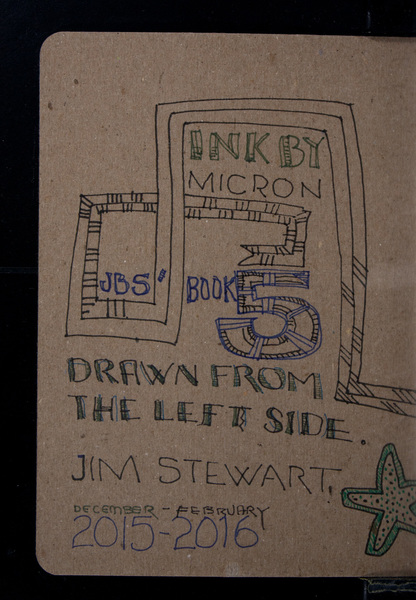 INK BY
MICRON
JBS" BOOK 5
DRAWN FROM
THE LEFT SIDE.
JIM STEWART,
DECEMBER - FEBRUARY
2015-2016